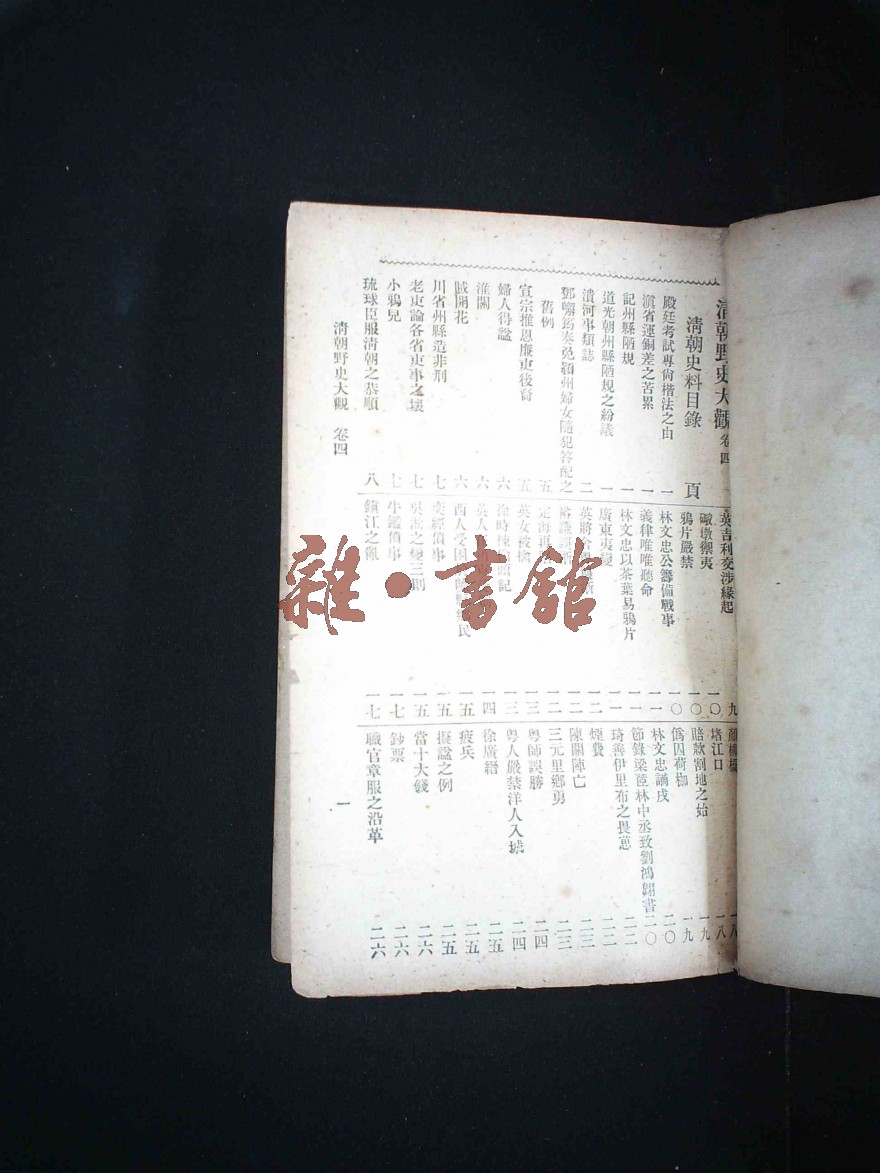 清朝野史大觀 卷四
清朝史料目錄 頁
殿廷考試專尙楷法之由 一
滇省運銅差之苦累 一
記州縣陋規 一
道光朝州縣陋規之紛議 一
濆河事類誌 二
鄧嶰筠奏免潁州婦女隨犯答配之
舊例 五
宣宗推恩廉吏後裔 五
婦人得諡 六
淮關 六
賊開花 六
川省州縣造非刑 七
老吏論各省吏事之壞 七
小鴉兒 七
琉球臣服清朝之恭順 八
英吉利交涉緣起 九
礮墩禦夷 一〇
鴉片嚴禁 一〇
林文忠公籌備戰事 一〇
義律唯唯聽命 一一
林文忠以茶葉易鴉片 一一
廣東夷變 一一
英將 一二
裕謙 一二
定海再 一三
英女被擒 一三
徐時棟 記 一三
英人 一四
西人受困 民 一五
奕經僨事 一五
吳淞之變三則 一五
牛鑑僨事 一七
鎭江之 一七
顏柳橋 一八
塔江口 一八
賠款割地之始 一九
僞囚荷枷 一九
林文忠謫戍 二〇
節錄梁茝林中丞致劉鴻翱書 二〇
琦善伊里布之畏葸 二二
煙費 二二
陳關陣亡 二三
三元里鄕勇 二三
粵師誤勝 二四
粵人嚴禁洋人入城 二四
徐廣縉 二五
疲兵 二五
擬諡之例 二五
當十大錢 二六
鈔票 二六
職官章服之沿革 二六
清朝野史大觀 卷四 一
雜·書館